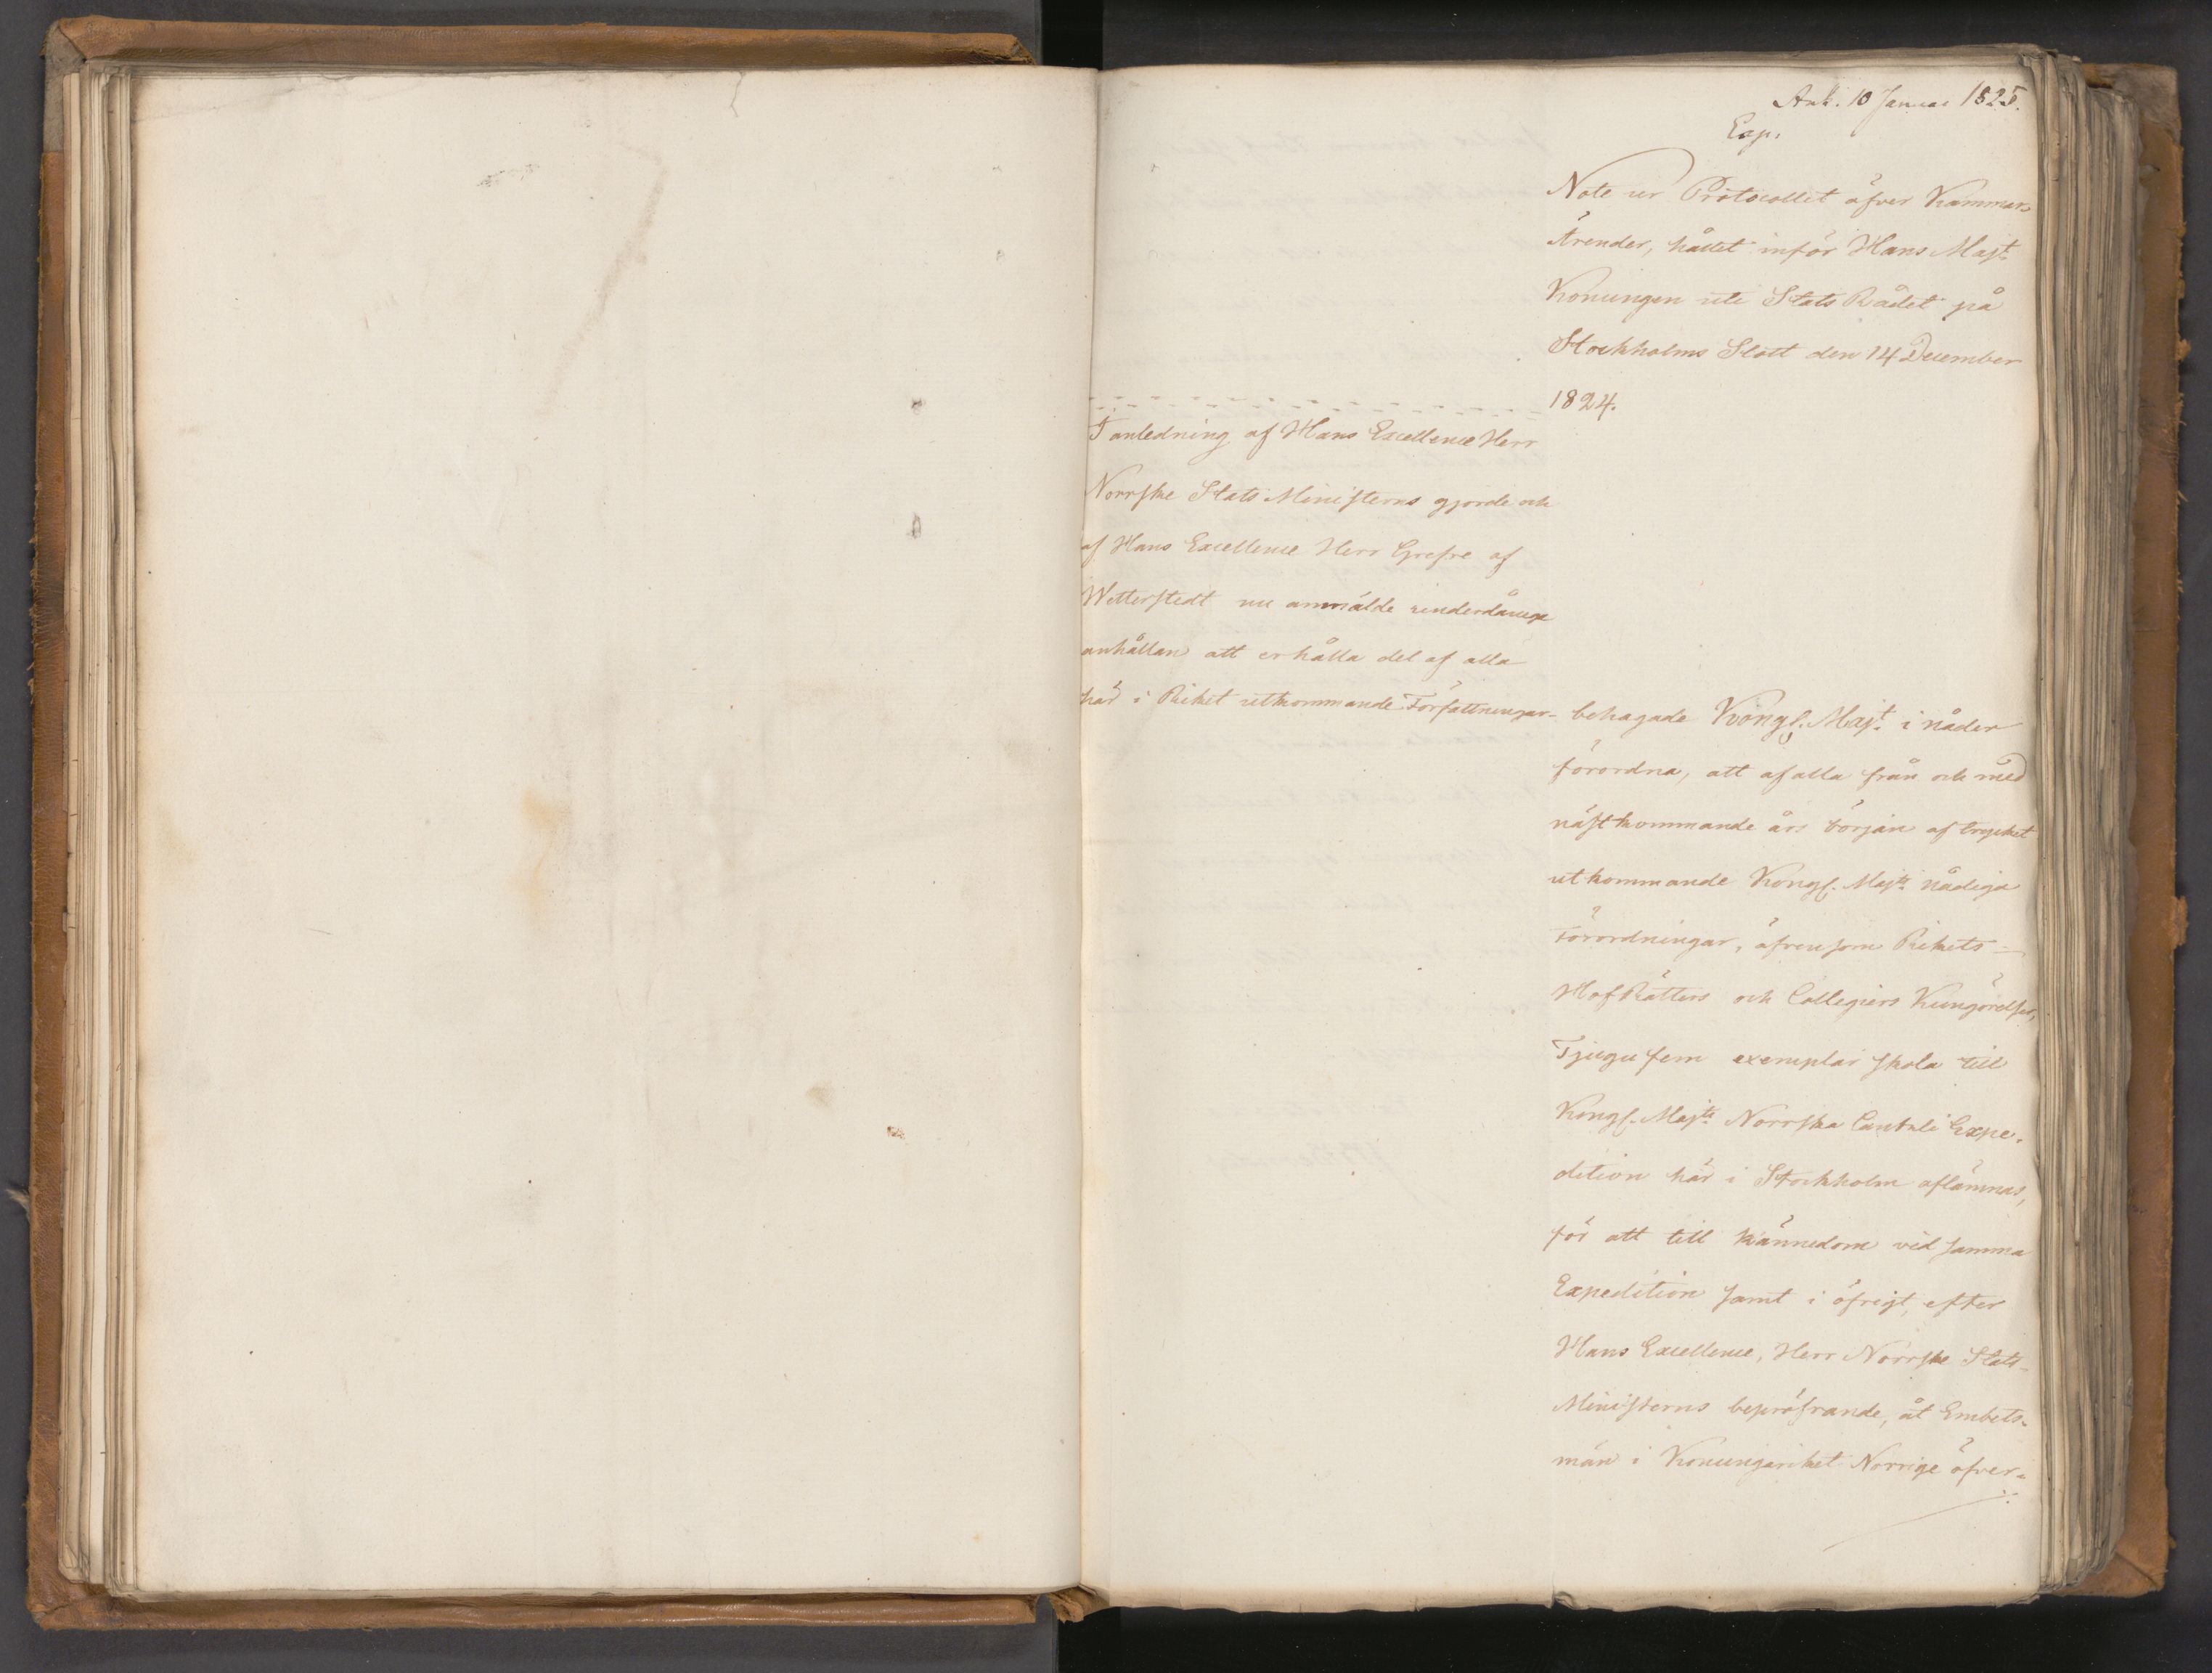 Ank. 10 Januai 1825.
Exp.
Note ur Protocollet öfver Kammar-
Ärender, hållet inför Hans Majt.
Konungen uti Stats Rådet på
Stockholms Slott den 14 December
1824.
I anledning af Hans Excellence Herr
Norrske Stats Ministerns gjorde och
af Hans Excellence Herr Grefve af
Wetterstedt nu anmälde underdånige
anhållan att erhålla del af alla
här i Riket utkommande Författningar-
behagade Kongl. Majt. i nåder
förordna, att af alla från och med
nästkommande års början af trycket
utkommande Kongl. Majts. nådiga
Förordningar, äfvensom Rikets-
Hof Rätters och Collegiers Kungörelser,
Tjugufem exemplar skola till
Kongl. Majts. Norrska Cantsli Expe-
dition här i Stockholm aflämnas,
för att till kännedom vid samma
Expedition samt i öfrigt, efter
Hans Excellence, Herr Norrske Stats-
Ministerns bepröfvande, åt Embets-
män i Konungariket Norrige öfver-